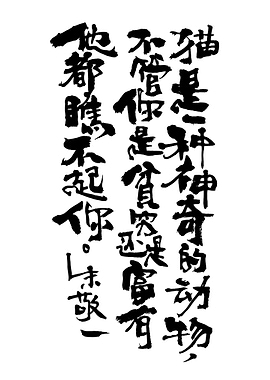 猫是一种神奇的动物，
不管你是贫穷还是富有
他都瞧不起你。
朱敬一